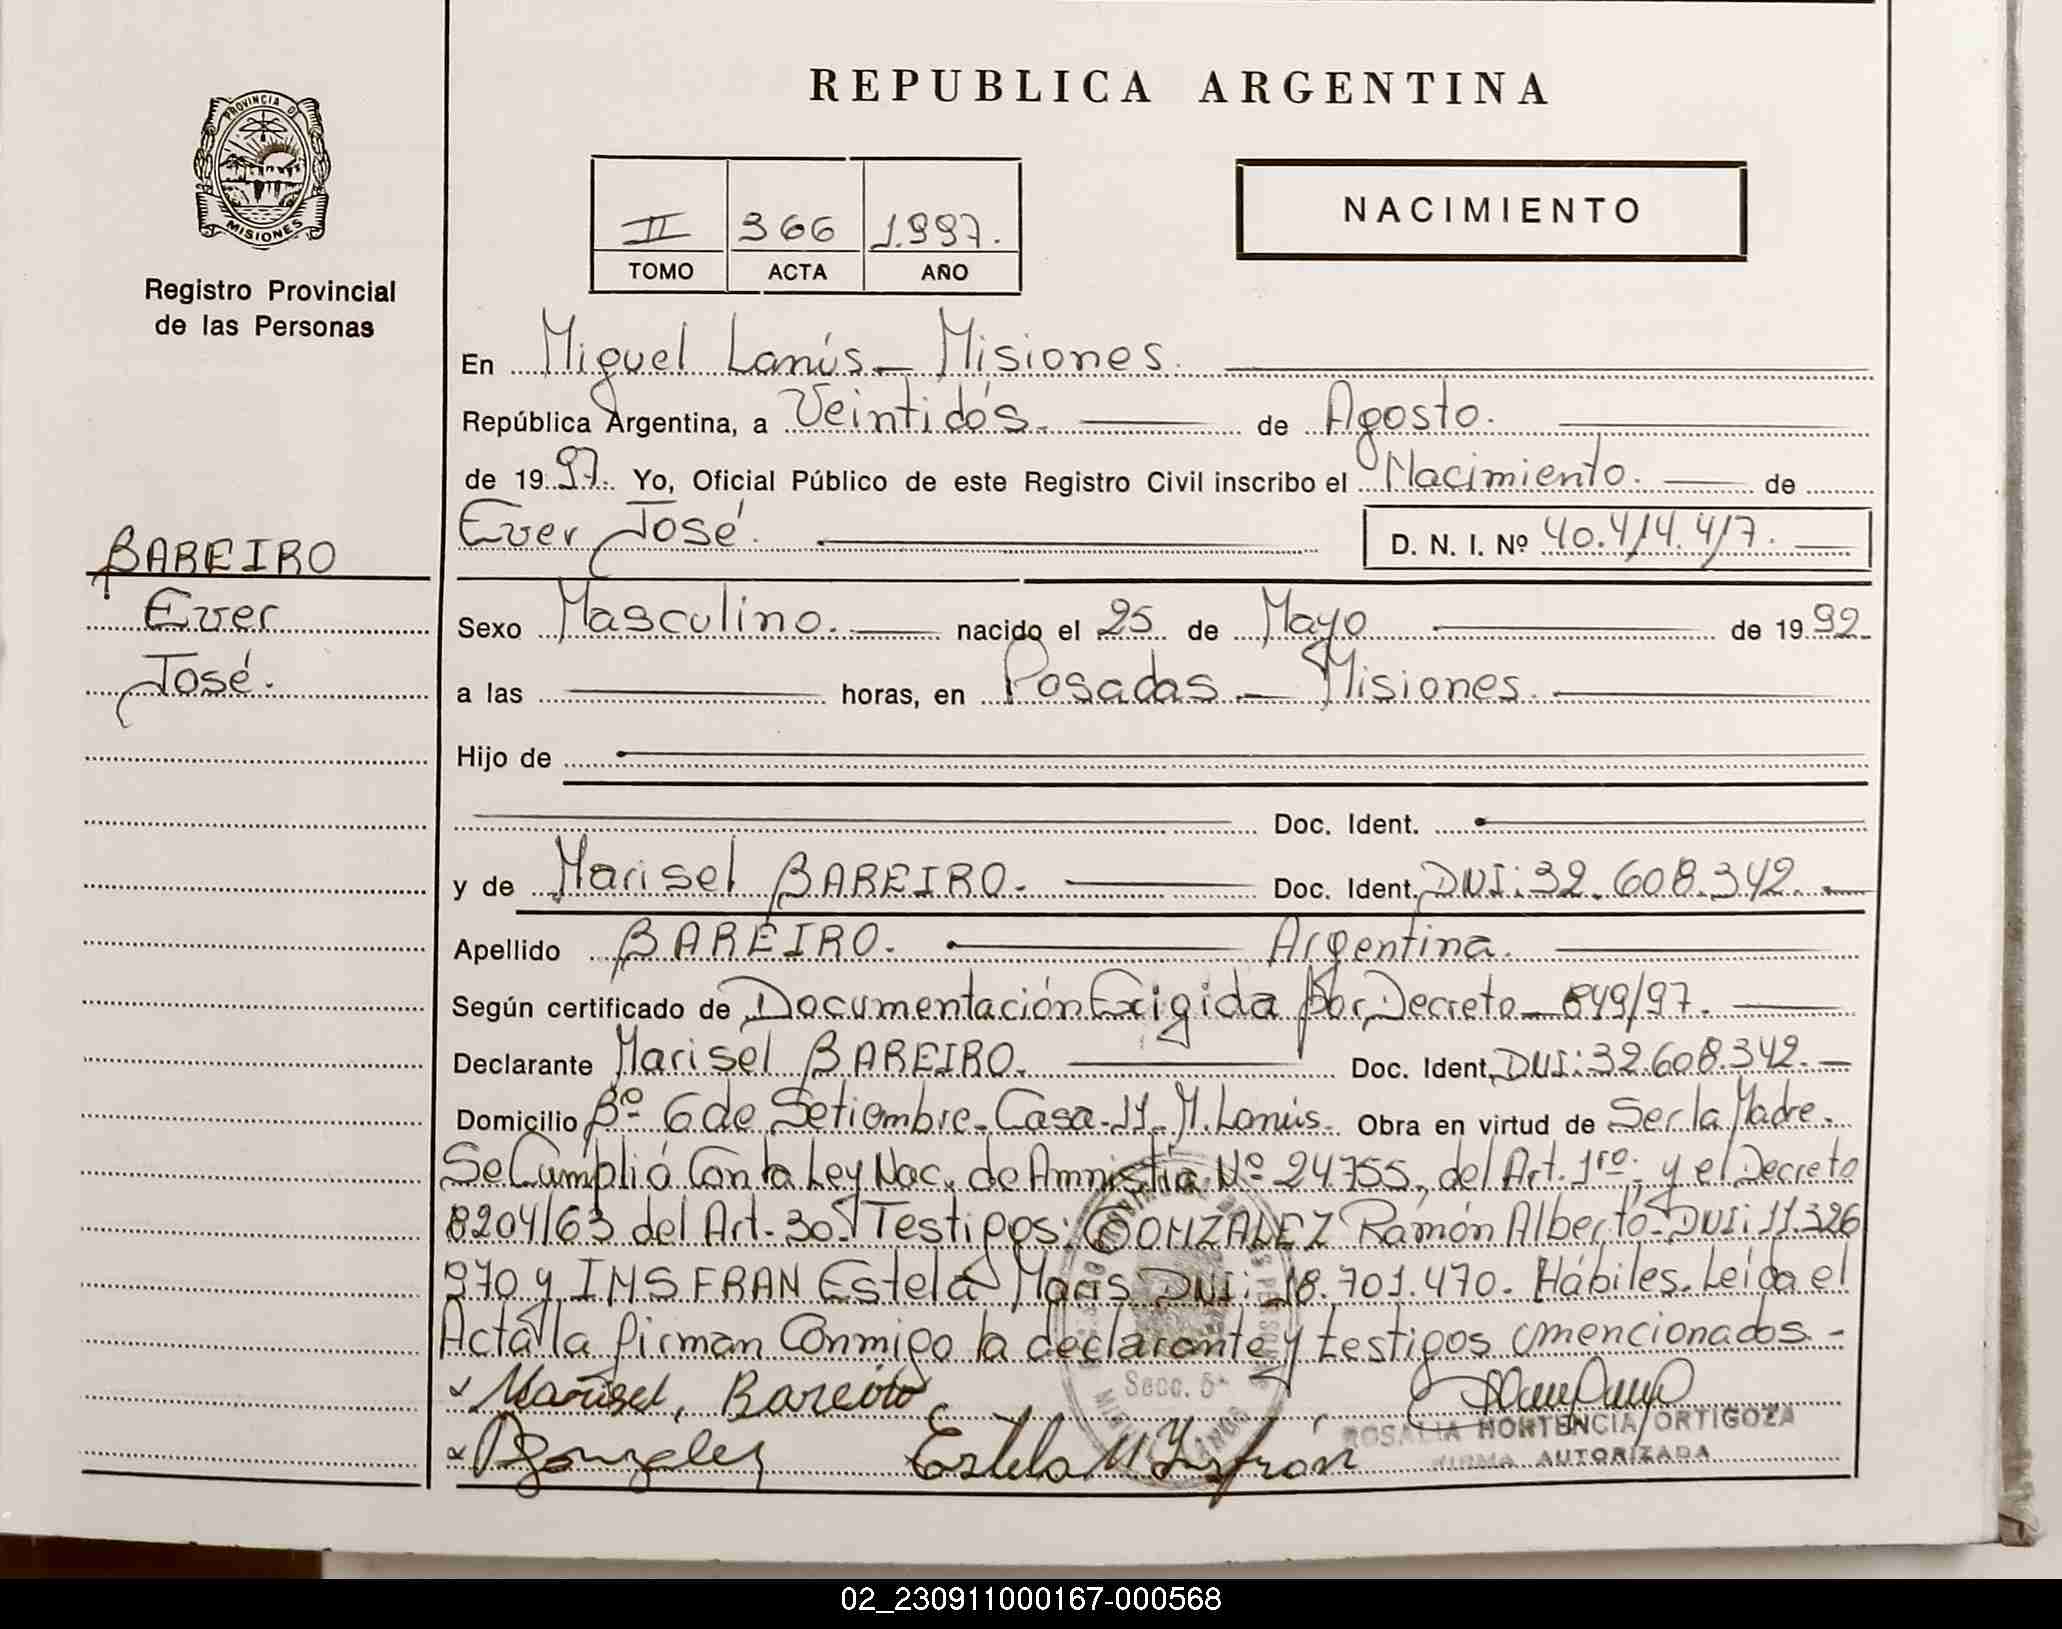 REPUBLICA ARGENTINA
PROVINCIA DE
MISIONES
Registro Provincial
de las Personas
II 366 1.997.
TOMO ACTA AÑO
NACIMIENTO
En Miguel Lanús - Misiones.
República Argentina, a Veintidós. de Agosto.
de 1997. Yo, Oficial Público de este Registro Civil inscribo el Nacimiento. de
Ever José. D. N. I. Nº 40.414.417.
BAREIRO
Ever
José.
Sexo Masculino. nacido el 25 de Mayo de 1992
a las horas, en Posadas - Misiones.
Hijo de
Doc. Ident.
y de Marisel BAREIRO. Doc. Ident. DNI: 32.608.342.
Apellido BAREIRO. Argentina.
Según certificado de Documentación Exigida por Decreto - 849/97.
Declarante Marisel BAREIRO. Doc. Ident. DNI: 32.608.342.
Domicilio Bº 6 de Setiembre. Casa-11- M. Lanús. Obra en virtud de Ser la Madre.
Se Cumplió Con la Ley Nac. de Amnistia Nº 24.755, del Art. 1ro; y el Decreto
8204/63 del Art. 30. Testigos: GONZALEZ Ramón Alberto - DNI: 11.326
970 y INSFRAN Estela Maris DNI: 18.701.470. Hábiles. Leida el
Acta la firman Conmigo la declarante y testigos mencionados. -
Marisel, Bareiro
Secc. 5ª
Gonzalez Estela M Insfrán
ROSALIA HORTENCIA ORTIGOZA
FIRMA AUTORIZADA
02_230911000167-000568